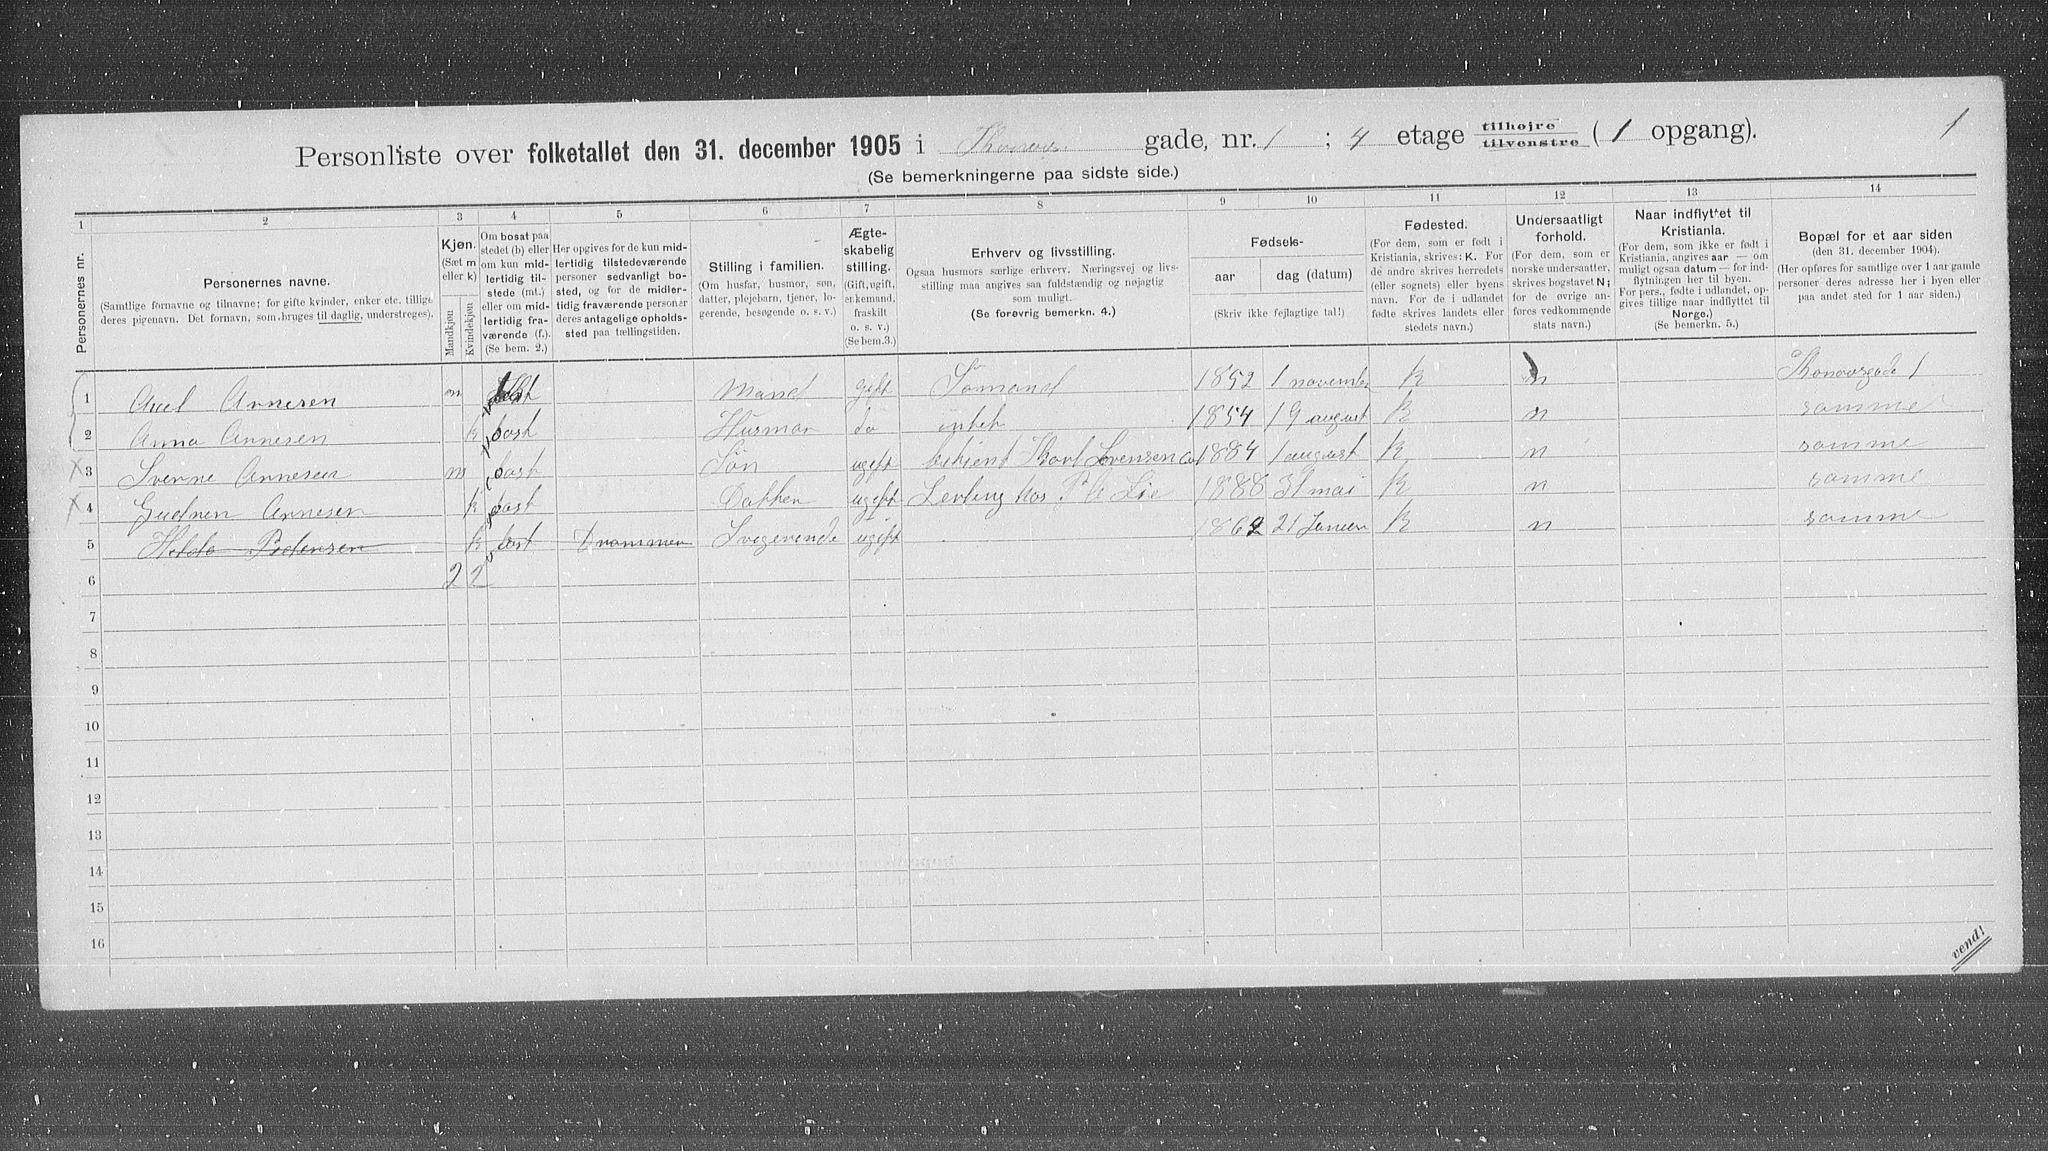 1
Personliste over folketallet den 31. december 1905 i gade, nr. 1 ; 4 etage tilhøjre tilvenstre ( 1 opgang).
(Se bemerkningerne paa sidste side.)
1 2 3 4 5 6 7 8 9 10 11 12 13 14
Personernes nr.
Personernes navne.
(Samtlige fornavne og tilnavne; for gifte kvinder, enker etc. tillige
deres pigenavn. Det fornavn, som bruges til daglig, understreges).
Kjøn.
(Sæt m
eller k)
Mandkjøn
Kvindekjøn
Om bosat paa
stedet (b) eller
om kun mid-
lertidig til-
stede (mt.)
eller om mid-
lertidig fra-
værende (f.).
(Se bem. 2.)
Her opgives for de kun mid-
lertidig tilstedeværende
personer sedvanligt bo-
sted, og for de midler-
tidig fraværende personer
deres antagelige opholds-
sted paa tællingstiden.
Stilling i familien.
(Om husfar, husmor, søn,
datter, plejebarn, tjener, lo-
gerende, besøgende o. s. v.)
Ægte-
skabelig
stilling.
(Gift, ugift,
enkemand,
fraskilt
o. s. v.)
(Se bem.3.)
Erhverv og livsstilling.
Ogsaa husmors særlige erhverv. Næringsvej og livs-
stilling maa angives saa fuldstændig og nøjagtig
som muligt.
(Se forøvrig bemerkn. 4.)
Fødsels-
aar
dag (datum)
(Skriv ikke fejlagtige tal!)
Fødested.
(For dem, som er født i
Kristiania, skrives: K. For
de andre skrives herredets
(eller sognets) eller byens
navn. For de i udlandet
fødte skrives landets eller
stedets navn.)
Undersaatligt
forhold.
(For dem, som er
norske undersaatter,
skrives bogstavet N;
for de øvrige an-
føres vedkommende
stats navn.)
Naar indflyttet til
Kristiania.
(For dem, som ikke er født i
Kristiania, angives aar — om
muligt ogsaa datum — for ind-
flytningen her til byen.
For pers., født i udlandet, op-
gives tillige naar indflyttet til
Norge.)
(Se bemerkn. 5.)
Bopæl for et aar siden
(den 31. december 1904).
(Her opføres for samtlige over 1 aar gamle
personer deres adresse her i byen eller
paa andet sted for 1 aar siden.)
1 Axel Arnesen m bost Mand gift Sømand 1852 1 november K n
2 Anna Arnesen k bost Husmor do intet 1854 19 august K n samme
3 Sverne Arnesen m bost Søn ugift betjent 1884 1 august K n samme
4 Arnesen k bost Datter ugift hos Lie 1888 31 mai K n samme
5 Pedersen k bost Drammen ugift 1862 21 K n samme
6 2 2
7
8
9
10
11
12
13
14
15
16
vend!